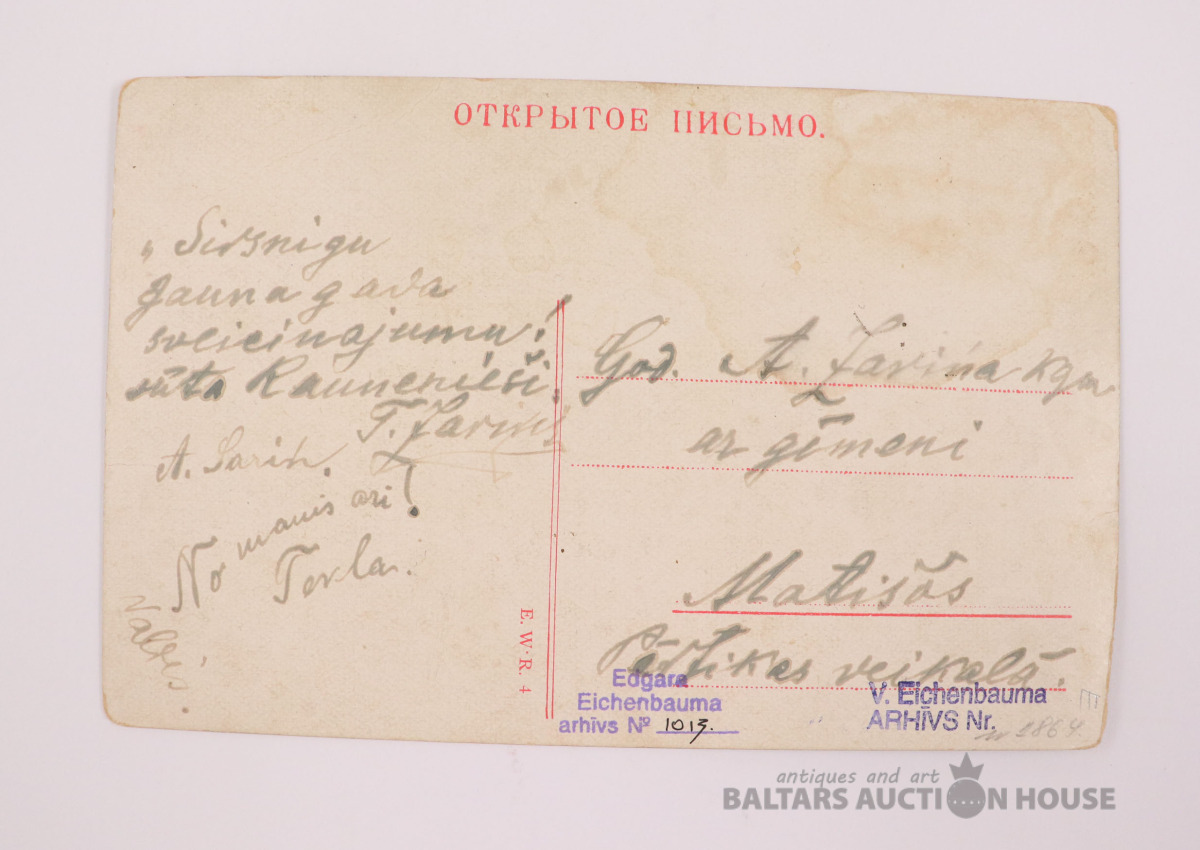 ОТКРЫТОЕ ПИСЬМО.
„ Sirsnigu
Jauna gada
sveicinajumu!
sūta Raunenieši.
T. Zariņš
A. Sariņ.
No manis ari!
Tekla.
God. A. Zariņa kgm
ar ģimeni
Matišōs
Pārtikas veikalā.
E. W. R. 4
Edgara
Eichenbauma
arhīvs Nº 1013.
V. Eichenbauma
ARHĪVS Nr.
antiques and art
BALTARS AUCTION HOUSE